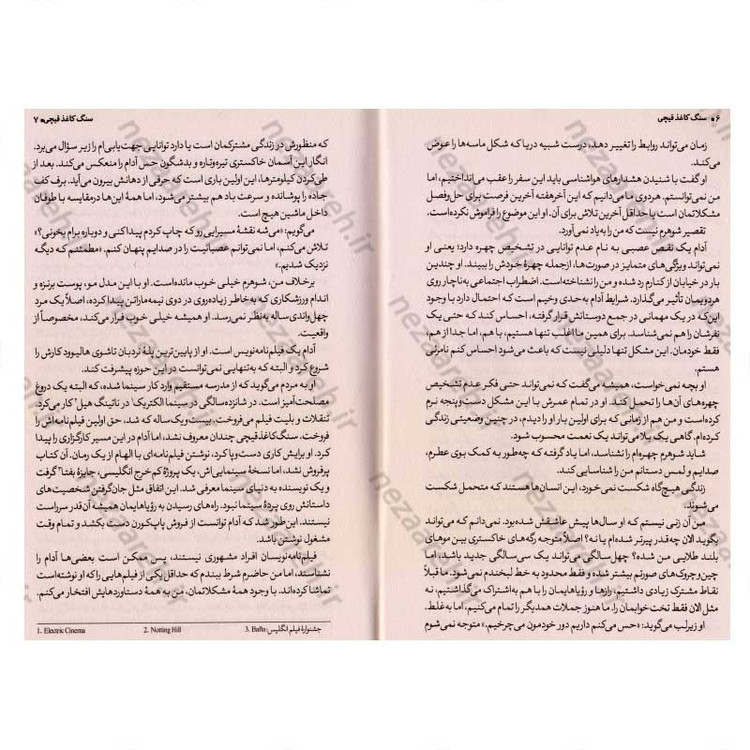 ۶ • سنگ کاغذ قیچی
زمان می‌تواند روابط را تغییر دهد، درست شبیه دریا که شکل ماسه‌ها را عوض
می‌کند.
او گفت با شنیدن هشدارهای هواشناسی باید این سفر را عقب می‌انداختیم، اما
من نمی‌توانستم. هردوی ما می‌دانیم که این آخرهفته آخرین فرصت برای حل‌وفصل
مشکلاتمان است یا حداقل آخرین تلاش برای آن. او این موضوع را فراموش نکرده است.
تقصیر شوهرم نیست که من را به یاد نمی‌آورد.
آدام یک نقص عصبی به نام عدم توانایی در تشخیص چهره دارد؛ یعنی او
نمی‌تواند ویژگی‌های متمایز در صورت‌ها، ازجمله چهرهٔ خودش را ببیند. او چندین
بار در خیابان از کنارم رد شده و من را نشناخته است. اضطراب اجتماعی به‌ناچار روی
هردویمان تأثیر می‌گذارد. شرایط آدام به حدی وخیم است که احتمال دارد با وجود
این‌که در یک مهمانی در جمع دوستانش قرار گرفته، احساس کند که حتی یک
نفرشان را هم نمی‌شناسد. برای همین ما اغلب تنها هستیم، با هم، اما جدا از هم،
فقط خودمان. این مشکل تنها دلیلی نیست که باعث می‌شود احساس کنم نامرئی
هستم.
او بچه نمی‌خواست، همیشه می‌گفت که نمی‌تواند حتی فکر عدم تشخیص
چهره‌های آن‌ها را تحمل کند. او در تمام عمرش با این مشکل دست‌وپنجه نرم
کرده است و من هم از زمانی که برای اولین بار او را دیدم، در چنین وضعیتی زندگی
کرده‌ام. گاهی یک بلا می‌تواند یک نعمت محسوب شود.
شاید شوهرم چهره‌ام را نشناسد، اما یاد گرفته که چه‌طور به کمک بوی عطرم،
صدایم و لمس دستانم من را شناسایی کند.
زندگی هیچ‌گاه شکست نمی‌خورد، این انسان‌ها هستند که متحمل شکست
می‌شوند.
من آن زنی نیستم که او سال‌ها پیش عاشقش شده بود. نمی‌دانم که می‌تواند
بگوید الان چه‌قدر پیرتر شده‌ام یا نه؟ اصلاً متوجه رگه‌های خاکستری بین موهای
بلند طلایی من شده؟ چهل‌سالگی می‌تواند یک سی‌سالگی جدید باشد، اما
چین‌وچروک‌های صورتم بیشتر شده و فقط محدود به خط لبخندم نمی‌شود. ما قبلاً
نقاط مشترک زیادی داشتیم، رازها و رؤیاهایمان را با هم به‌اشتراک می‌گذاشتیم، نه
مثل الان فقط تخت خوابمان را. ما هنوز جملات همدیگر را تمام می‌کنیم، اما به‌غلط.
او زیرلب می‌گوید: «حس می‌کنم داریم دور خودمون می‌چرخیم.» متوجه نمی‌شوم
سنگ کاغذ قیچی • ۷
که منظورش در زندگی مشترکمان است یا دارد توانایی جهت‌یابی‌ام را زیر سؤال می‌برد.
انگار این آسمان خاکستری تیره‌وتاره و بدشگون حس آدام را منعکس می‌کند. بعد از
طی‌کردن کیلومترها، این اولین باری است که حرفی از دهانش بیرون می‌آید. برف کف
جاده را پوشانده و سرعت باد هم بیشتر می‌شود، اما همهٔ این‌ها درمقایسه با طوفان
داخل ماشین هیچ است.
می‌گویم: «می‌شه نقشهٔ مسیرایی رو که چاپ کردم پیدا کنی و دوباره برام بخونی؟»
تلاش می‌کنم، اما نمی‌توانم عصبانیت را در صدایم پنهان کنم. «مطمئنم که دیگه
نزدیک شدیم.»
برخلاف من، شوهرم خیلی خوب مانده است. او با این مدل مو، پوست برنزه و
اندام ورزشکاری که به‌خاطر زیاده‌روی در دوی نیمه‌ماراتن پیدا کرده، اصلاً یک مرد
چهل‌واندی ساله به‌نظر نمی‌رسد. او همیشه خیلی خوب فرار می‌کند، مخصوصاً از
واقعیت.
آدام یک فیلم‌نامه‌نویس است. او از پایین‌ترین پلهٔ نردبان تاشوی هالیوود کارش را
شروع کرد و البته که به‌تنهایی نمی‌توانست در این حوزه پیشرفت کند.
او به مردم می‌گوید که از مدرسه مستقیم وارد کار سینما شده، که البته یک دروغ
مصلحت‌آمیز است. در شانزده‌سالگی در سینما الکتریک¹ در ناتینگ هیل² کار می‌کرد،
تنقلات و بلیت فیلم می‌فروخت. بیست‌ویک‌ساله که شد، حق اولین فیلم‌نامه‌اش را
فروخت. سنگ کاغذ قیچی چندان معروف نشد، اما آدام در این مسیر کارگزاری را پیدا
کرد. او برایش کاری دست‌وپا کرد، نوشتن فیلم‌نامه‌ای با الهام از یک رمان. آن کتاب
پرفروش نشد، اما نسخهٔ سینمایی‌اش، یک پروژهٔ کم‌خرج انگلیسی، جایزهٔ بفتا³ گرفت
و یک نویسنده به دنیای سینما معرفی شد. این اتفاق مثل جان‌گرفتن شخصیت‌های
داستانش روی پردهٔ سینما نبود. راه‌های رسیدن به رؤیاهایمان همیشه آن‌قدر سرراست
نیستند، این‌طور شد که آدام توانست از فروش پاپ‌کورن دست بکشد و تمام وقت
مشغول نوشتن باشد.
فیلم‌نامه‌نویسان افراد مشهوری نیستند، پس ممکن است بعضی‌ها آدام را
نشناسند، اما من حاضرم شرط ببندم که حداقل یکی از فیلم‌هایی را که او نوشته است
تماشا کرده‌اند. با وجود همهٔ مشکلاتمان، من به همهٔ دستاوردهایش افتخار می‌کنم.
1. Electric Cinema 2. Notting Hill 3. Bafta: جشنوارهٔ فیلم انگلیس
nezaareh.ir